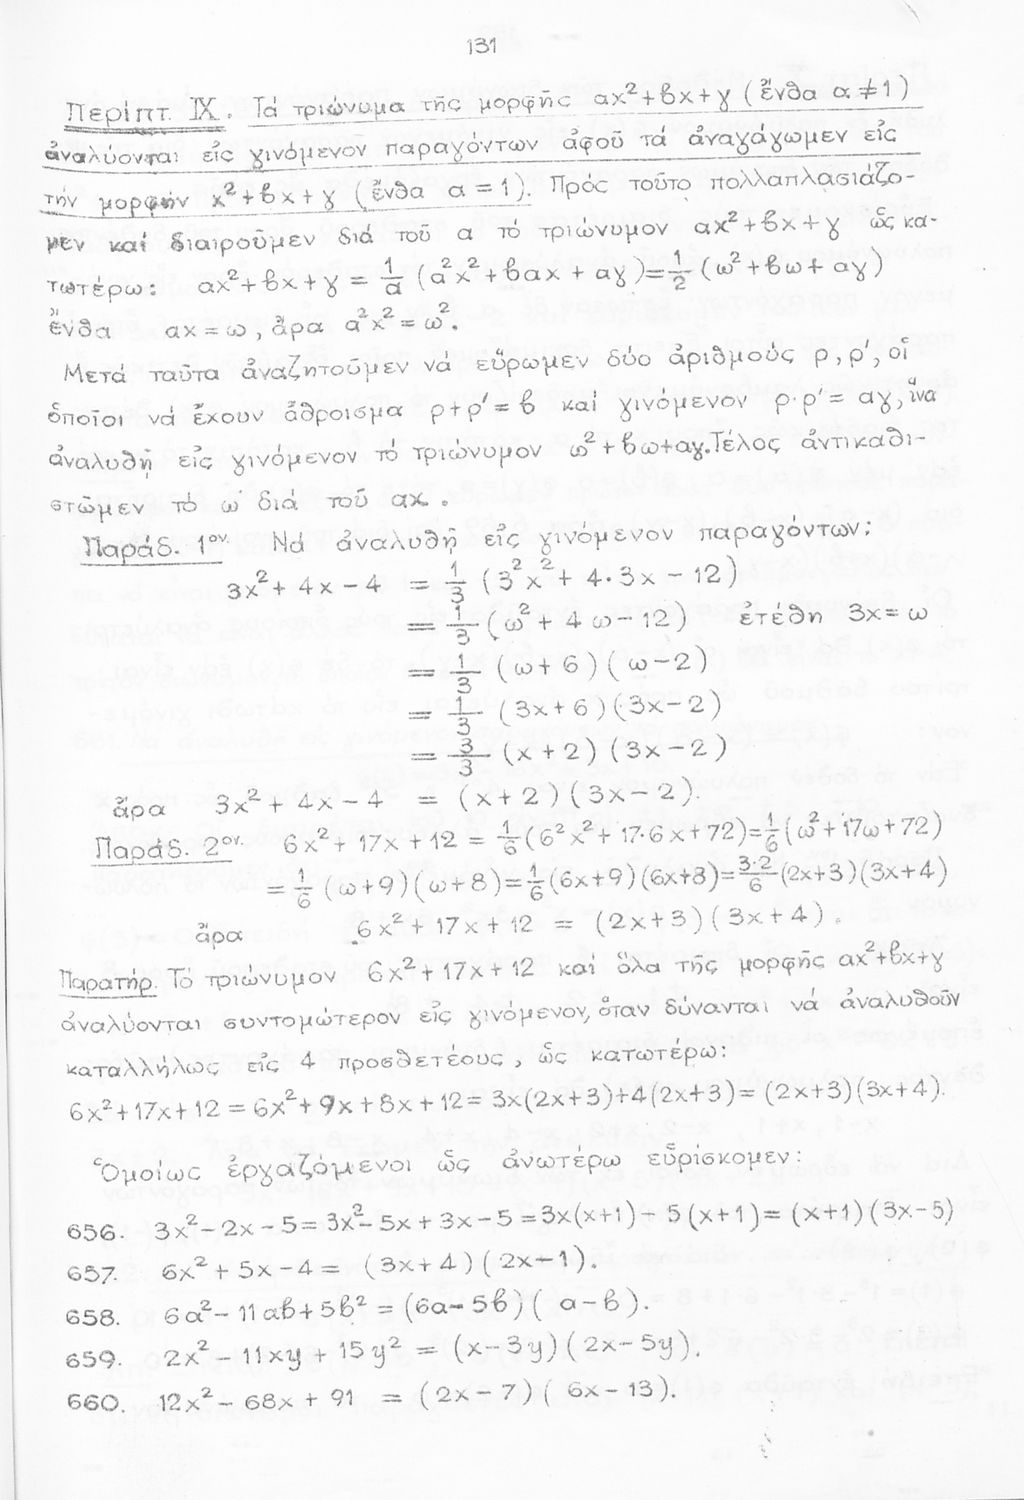 131
Περίπτ. ΙΧ. Τά τριώνυμα τῆς μορφῆς αx²+βx+γ (ἔνθα α≠1)
ἀναλύονται εἰς γινόμενον παραγόντων ἀφοῦ τά ἀναγάγωμεν εἰς
τήν μορφήν x²+βx+γ (ἔνθα α=1). Πρός τοῦτο πολλαπλασιάζο-
μεν καί διαιροῦμεν διά τοῦ α τό τριώνυμον αx²+βx+γ ὡς κα-
τωτέρω: αx²+βx+γ = 1/α (α²x²+βαx+αγ)=1/2(ω²+βω+αγ)
ἔνθα αx=ω, ἄρα α²x²=ω².
Μετά ταῦτα ἀναζητοῦμεν νά εὕρωμεν δύο ἀριθμούς ρ,ρ′, οἱ
ὁποῖοι νά ἔχουν ἄθροισμα ρ+ρ′=β καί γινόμενον ρ·ρ′=αγ, ἵνα
ἀναλυθῆ εἰς γινόμενον τό τριώνυμον ω²+βω+αγ. Τέλος ἀντικαθι-
στῶμεν τό ω διά τοῦ αx.
Παράδ. 1ον. Νά ἀναλυθῆ εἰς γινόμενον παραγόντων:
3x²+4x-4 = 1/3 (3²x²+4·3x-12)
= 1/3 (ω²+4ω-12) ἐτέθη 3x=ω
= 1/3 (ω+6)(ω-2)
= 1/3 (3x+6)(3x-2)
= 3/3 (x+2)(3x-2)
ἄρα 3x²+4x-4 = (x+2)(3x-2).
Παράδ. 2ον. 6x²+17x+12 = 1/6(6²x²+17·6x+72)=1/6(ω²+17ω+72)
= 1/6 (ω+9)(ω+8)=1/6(6x+9)(6x+8)=3·2/6(2x+3)(3x+4)
ἄρα 6x²+17x+12 = (2x+3)(3x+4).
Παρατήρ. Τό τριώνυμον 6x²+17x+12 καί ὅλα τῆς μορφῆς αx²+βx+γ
ἀναλύονται συντομώτερον εἰς γινόμενον, ὅταν δύνανται νά ἀναλυθοῦν
καταλλήλως εἰς 4 προσθετέους, ὡς κατωτέρω:
6x²+17x+12 = 6x²+9x+8x+12= 3x(2x+3)+4(2x+3)= (2x+3)(3x+4).
Ὁμοίως ἐργαζόμενοι ὡς ἀνωτέρω εὑρίσκομεν:
656. 3x²-2x-5= 3x²-5x+3x-5=3x(x+1)-5(x+1)= (x+1)(3x-5)
657. 6x²+5x-4= (3x+4)(2x-1).
658. 6α²-11αβ+5β² = (6α-5β)(α-β).
659. 2x²-11xy+15y² = (x-3y)(2x-5y).
660. 12x²-68x+91 = (2x-7)(6x-13).